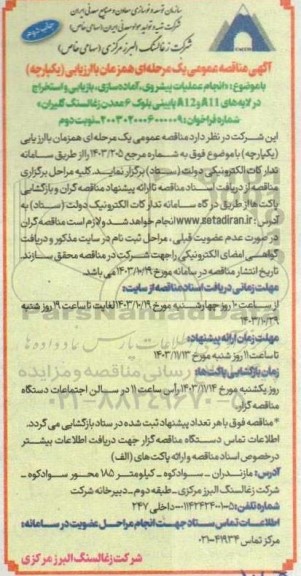 سازمان توسعه و نوسازی معادن و صنایع معدنی ایران
شرکت تهیه و تولید مواد معدنی ایران (سهامی خاص)
شرکت زغالسنگ البرز مرکزی (سهامی خاص)
چاپ دوم
آگهی مناقصه عمومی یک مرحله‌ای همزمان با ارزیابی (یکپارچه)
با موضوع: «انجام عملیات پیشروی، آماده‌سازی، بازیابی و استخراج
در لایه‌های A11 و A12 پایینی بلوک ۶ معدن زغالسنگ گلیران»
شماره فراخوان: ۲۰۰۳۰۲۰۰۰۶۰۰۰۰۰۹-نوبت دوم
این شرکت در نظر دارد مناقصه عمومی یک مرحله‌ای همزمان با ارزیابی
(یکپارچه) با موضوع فوق به شماره مرجع ۱۴۰۳/۲۰۵ را از طریق سامانه
تدارکات الکترونیکی دولت (ستاد) برگزار نماید. کلیه مراحل برگزاری
مناقصه از دریافت اسناد مناقصه تا ارائه پیشنهاد مناقصه گران و بازگشایی
پاکت ها از طریق درگاه سامانه تدارکات الکترونیک دولت (ستاد) به
آدرس: www.setadiran.ir انجام خواهد شد و لازم است مناقصه گران
در صورت عدم عضویت قبلی، مراحل ثبت نام در سایت مذکور و دریافت
گواهی امضای الکترونیکی را جهت شرکت در مناقصه محقق سازند.
تاریخ انتشار مناقصه در سامانه مورخ ۱۴۰۳/۱۰/۱۹ می باشد.
مهلت زمانی دریافت اسناد مناقصه از سایت:
از ساعت ۱۰ روز چهارشنبه مورخ ۱۴۰۳/۱۰/۱۹ لغایت تا ساعت ۱۹ روز شنبه
۱۴۰۳/۱۰/۲۹
مهلت زمان ارائه پیشنهاد:
تا ساعت ۱۱ روز شنبه مورخ ۱۴۰۳/۱۱/۱۳
زمان بازگشایی پاکت‌ها:
روز یکشنبه مورخ ۱۴۰۳/۱۱/۱۴ رأس ساعت ۱۱ در سالن اجتماعات دستگاه
مناقصه گزار
* مناقصه فوق با هر تعداد پیشنهاد ثبت شده در ستاد بازگشایی می گردد.
اطلاعات تماس دستگاه مناقصه گزار جهت دریافت اطلاعات بیشتر
در خصوص اسناد مناقصه و ارائه پاکت های (الف)
آدرس: مازندران ـ سوادکوه ـ کیلومتر ۱۸۵ محور سوادکوه ـ
شرکت زغالسنگ البرز مرکزی ـ طبقه دوم ـ دبیرخانه شرکت
شماره تلفن: ۵-۰۱۱۴۲۴۲۴۰۰۱-داخلی ۲۴۷
اطلاعات تماس ستاد جهت انجام مراحل عضویت در سامانه:
مرکز تماس ۴۱۹۳۴-۰۲۱
شرکت زغالسنگ البرز مرکزی